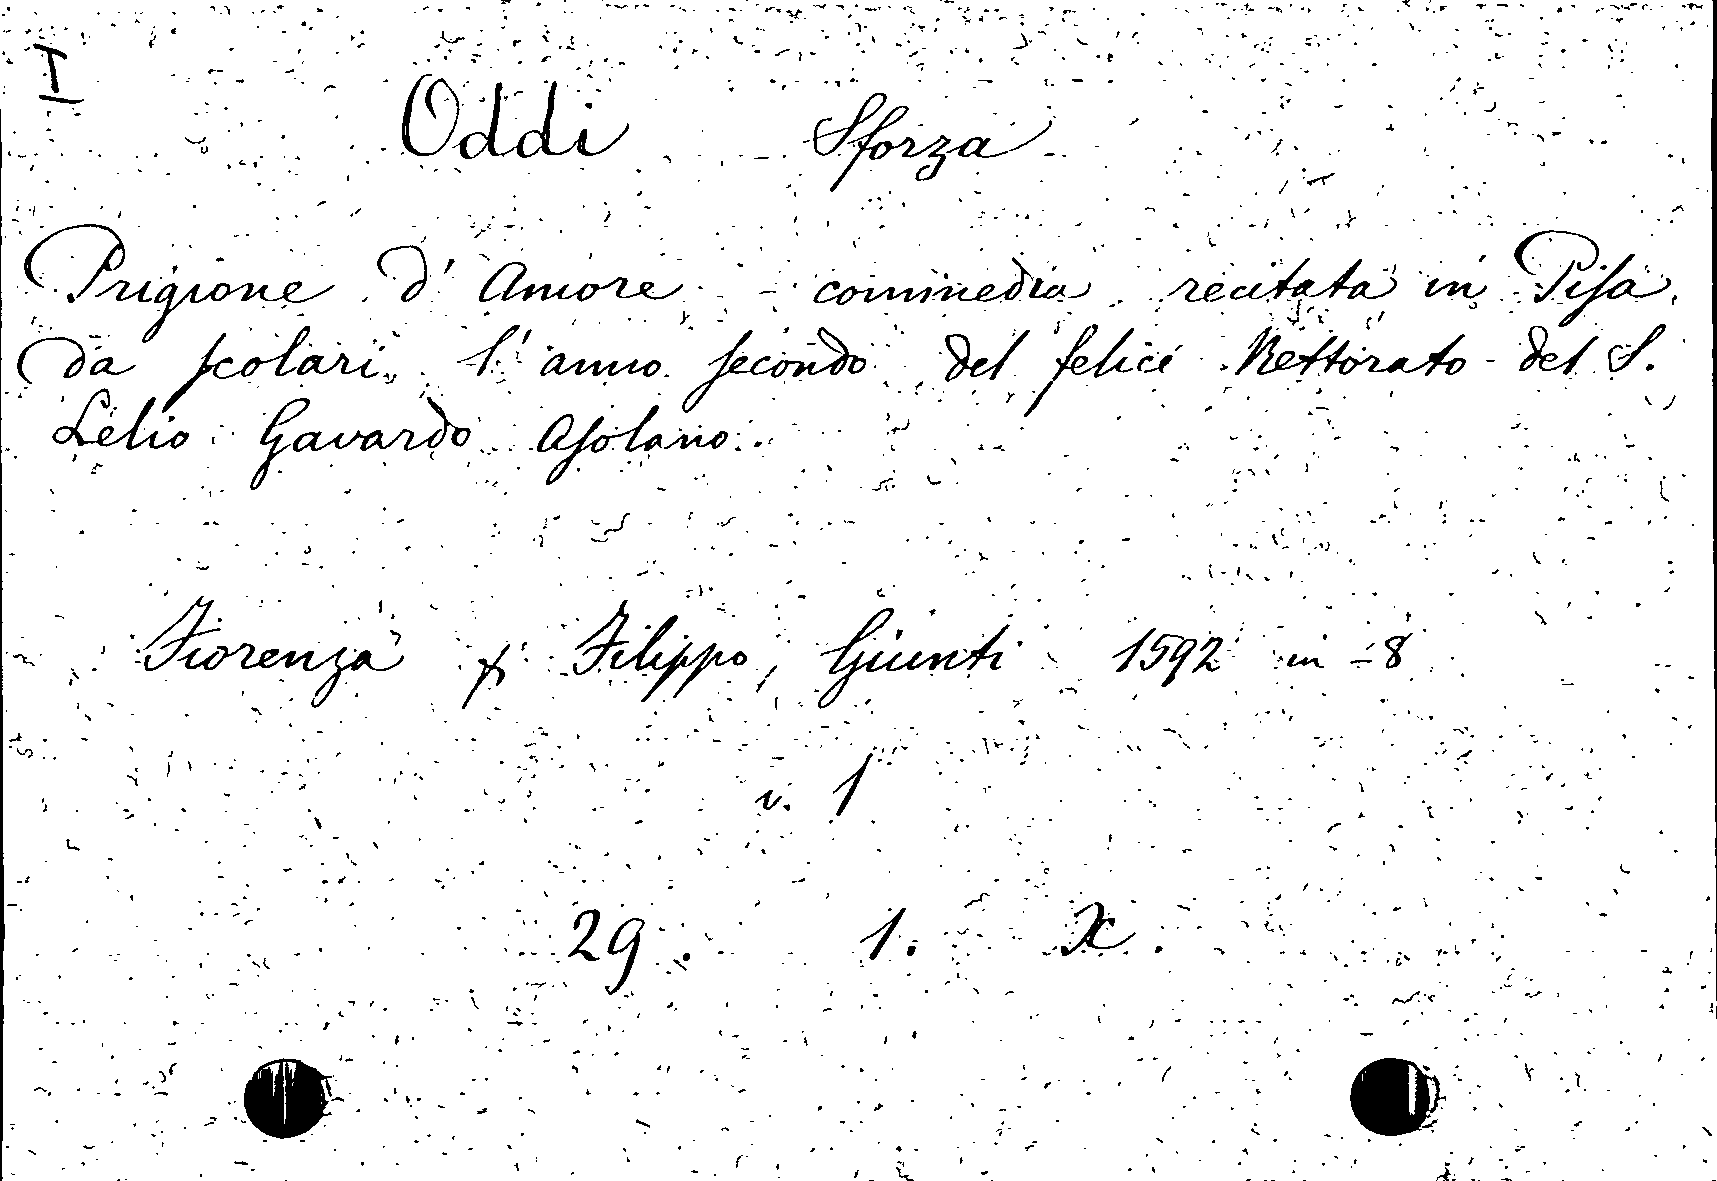 I
Oddi Sforza
Prigione d'Amore - commedia recitata in Pisa
da scolari l'anno secondo del felice Rettorato del S.
Lelio Gavardo Asolano.
Fiorenza p Filippo, Giunti 1592 in-8
v. 1
29. 1. X.